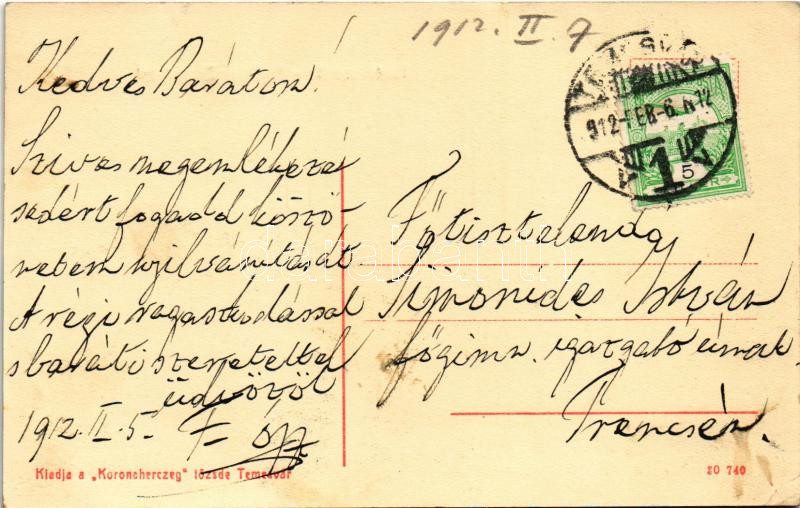 1912. II. 7
Kedves Barátom!
Szives megemlékezé
sedért fogadd köszö-
netem nyilvánitását
A régi ragaszkodással
s baráti szeretettel
üdvözöl
1912. II. 5.
912 FEB. -6.
5
Főtisztelendő
Simonides István
főgimn. igazgató úrnak
Trencsén.
darabanth
Kiadja a „Koronaherczeg" tőzsde Temesvár
20 740